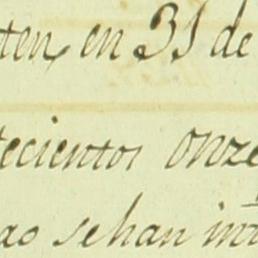 ten en 31 de
tecientos onze
ao sehan int